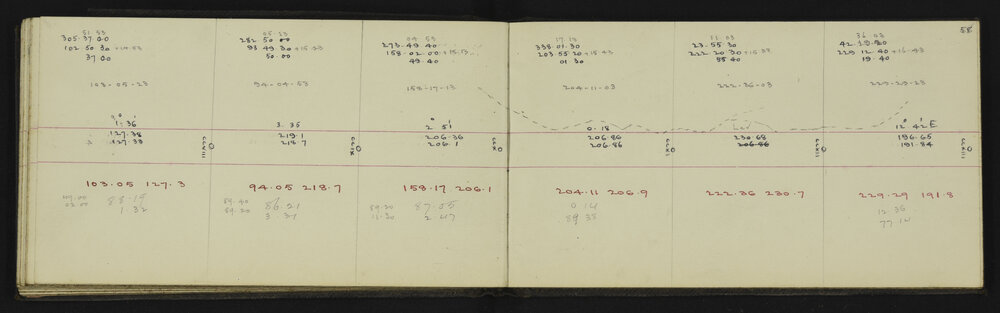 58
51 53
305.37.00
102 50 30 +14.53
37 00
103-05-23
1° 36'
127.38
127.38
CCXIII
103.05 127.3
88-19
1.32
05 23
282 50 00
93 49.30 +15.23
50.00
94-04-53
3 35
219.1
218.7
CCX
94.05 218.7
89.40
89.20
86.21
3 37
04 53
273.49 40
158-02.00 +15.13
49.40
158-17-13
2 51
206.36
206.1
CCX
158.17 206.1
89.20
87.05
2 47
17.13
338.01.30
203.55 20 +15.43
01.30
204-11-03
0.18
206.86
206.86
CCXII
204.11 206.9
0.14
89 38
11-03
23.55.30
222.20 30 +15.33
55 40
222-36-03
230.68
206.86
CCXII
222.36 230.7
36 03
229 12.40 +16.43
19.40
229-29-23
12° 42' E
196.65
191.84
CCXII
229.29 191.8
12 36
77 14